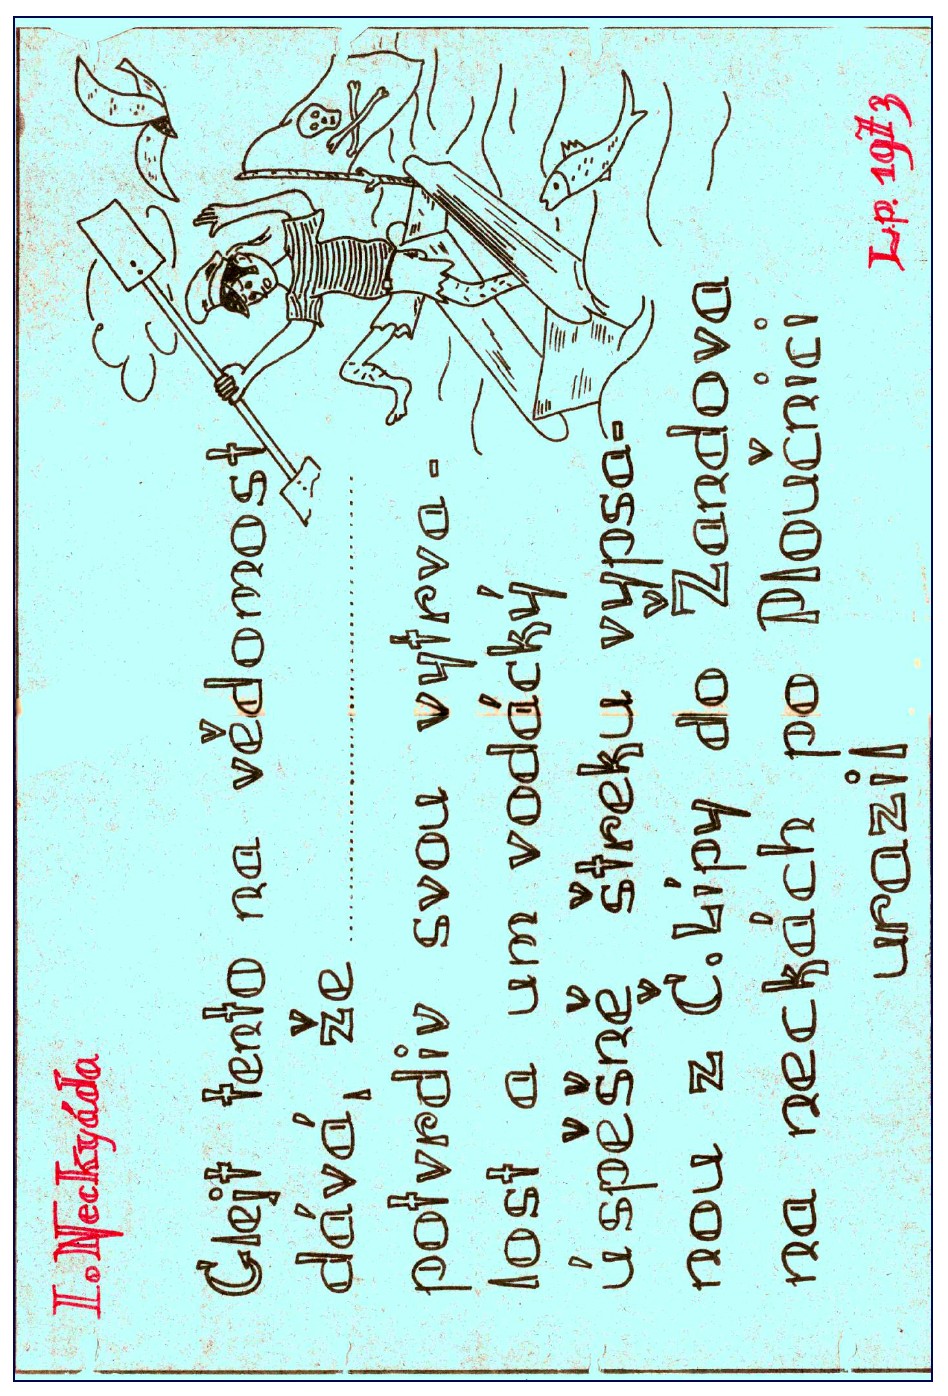 I. Neckyáda
L.p. 1973
Glejt tento na vědomost
dává, že ........................
potvrdiv svou vytrva-
lost a um vodácký
úspěšně štreku vypsa-
nou z Č. Lípy do Žandova
na neckách po Ploučnici
urazil